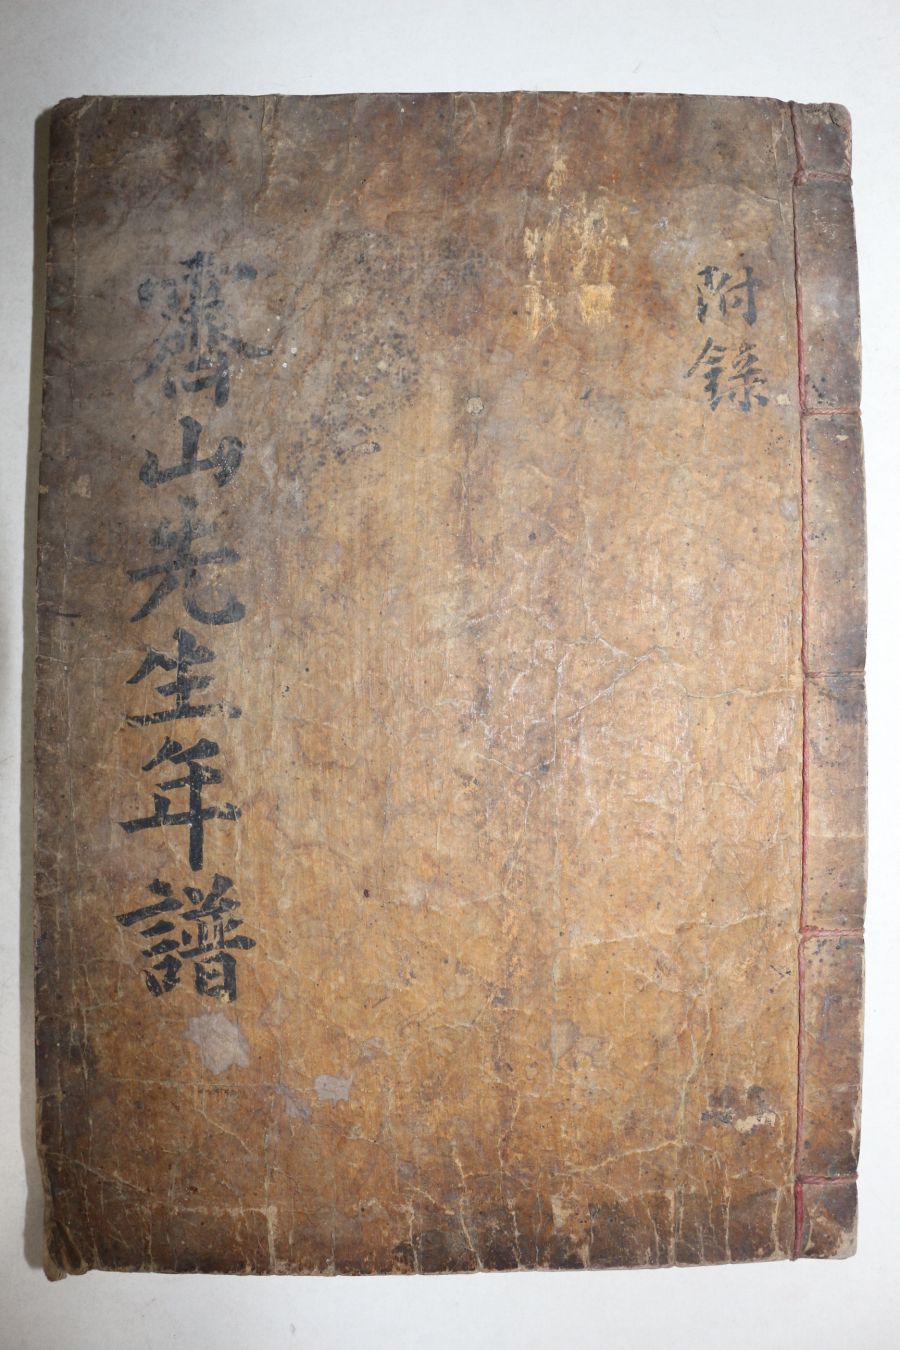 附錄
霽山先生年譜